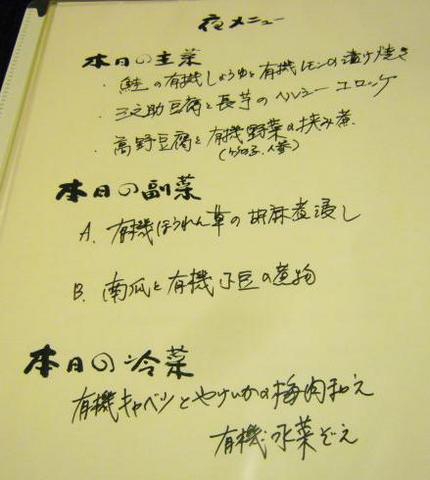 夜メニュー
本日の主菜
・鮭の有機しょうゆと有機レモンの漬け焼き
・三之助豆腐と長芋のヘルシーコロッケ
・高野豆腐と有機野菜の挟み煮
人参)
本日の副菜
A. 有機ほうれん草の胡麻煮浸し
B. 南瓜と有機小豆の煮物
本日の冷菜
有機キャベツとやけいかの梅肉和え
有機水菜ぞえ